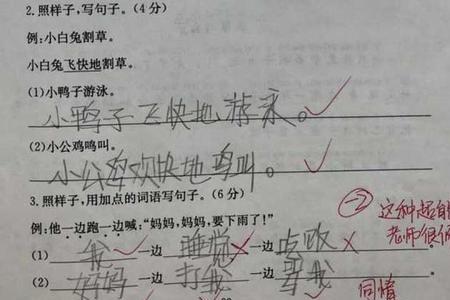 2.照样子,写句子。(4分)
例:小白兔割草。
小白兔飞快地割草。
(1)小鸭子游泳。
小鸭子飞快地游泳。
(2)小公鸡鸣叫。
小公鸡欢快地鸣叫。
3.照样子,用加点的词语写句子。(6分)
例:他一边跑一边喊:“妈妈,妈妈,要下雨了!”
(1) 我 一边 睡觉 一边
(2) 妈妈 一边 打我 一边 骂我
-2 这种超能
老师很佩
同情